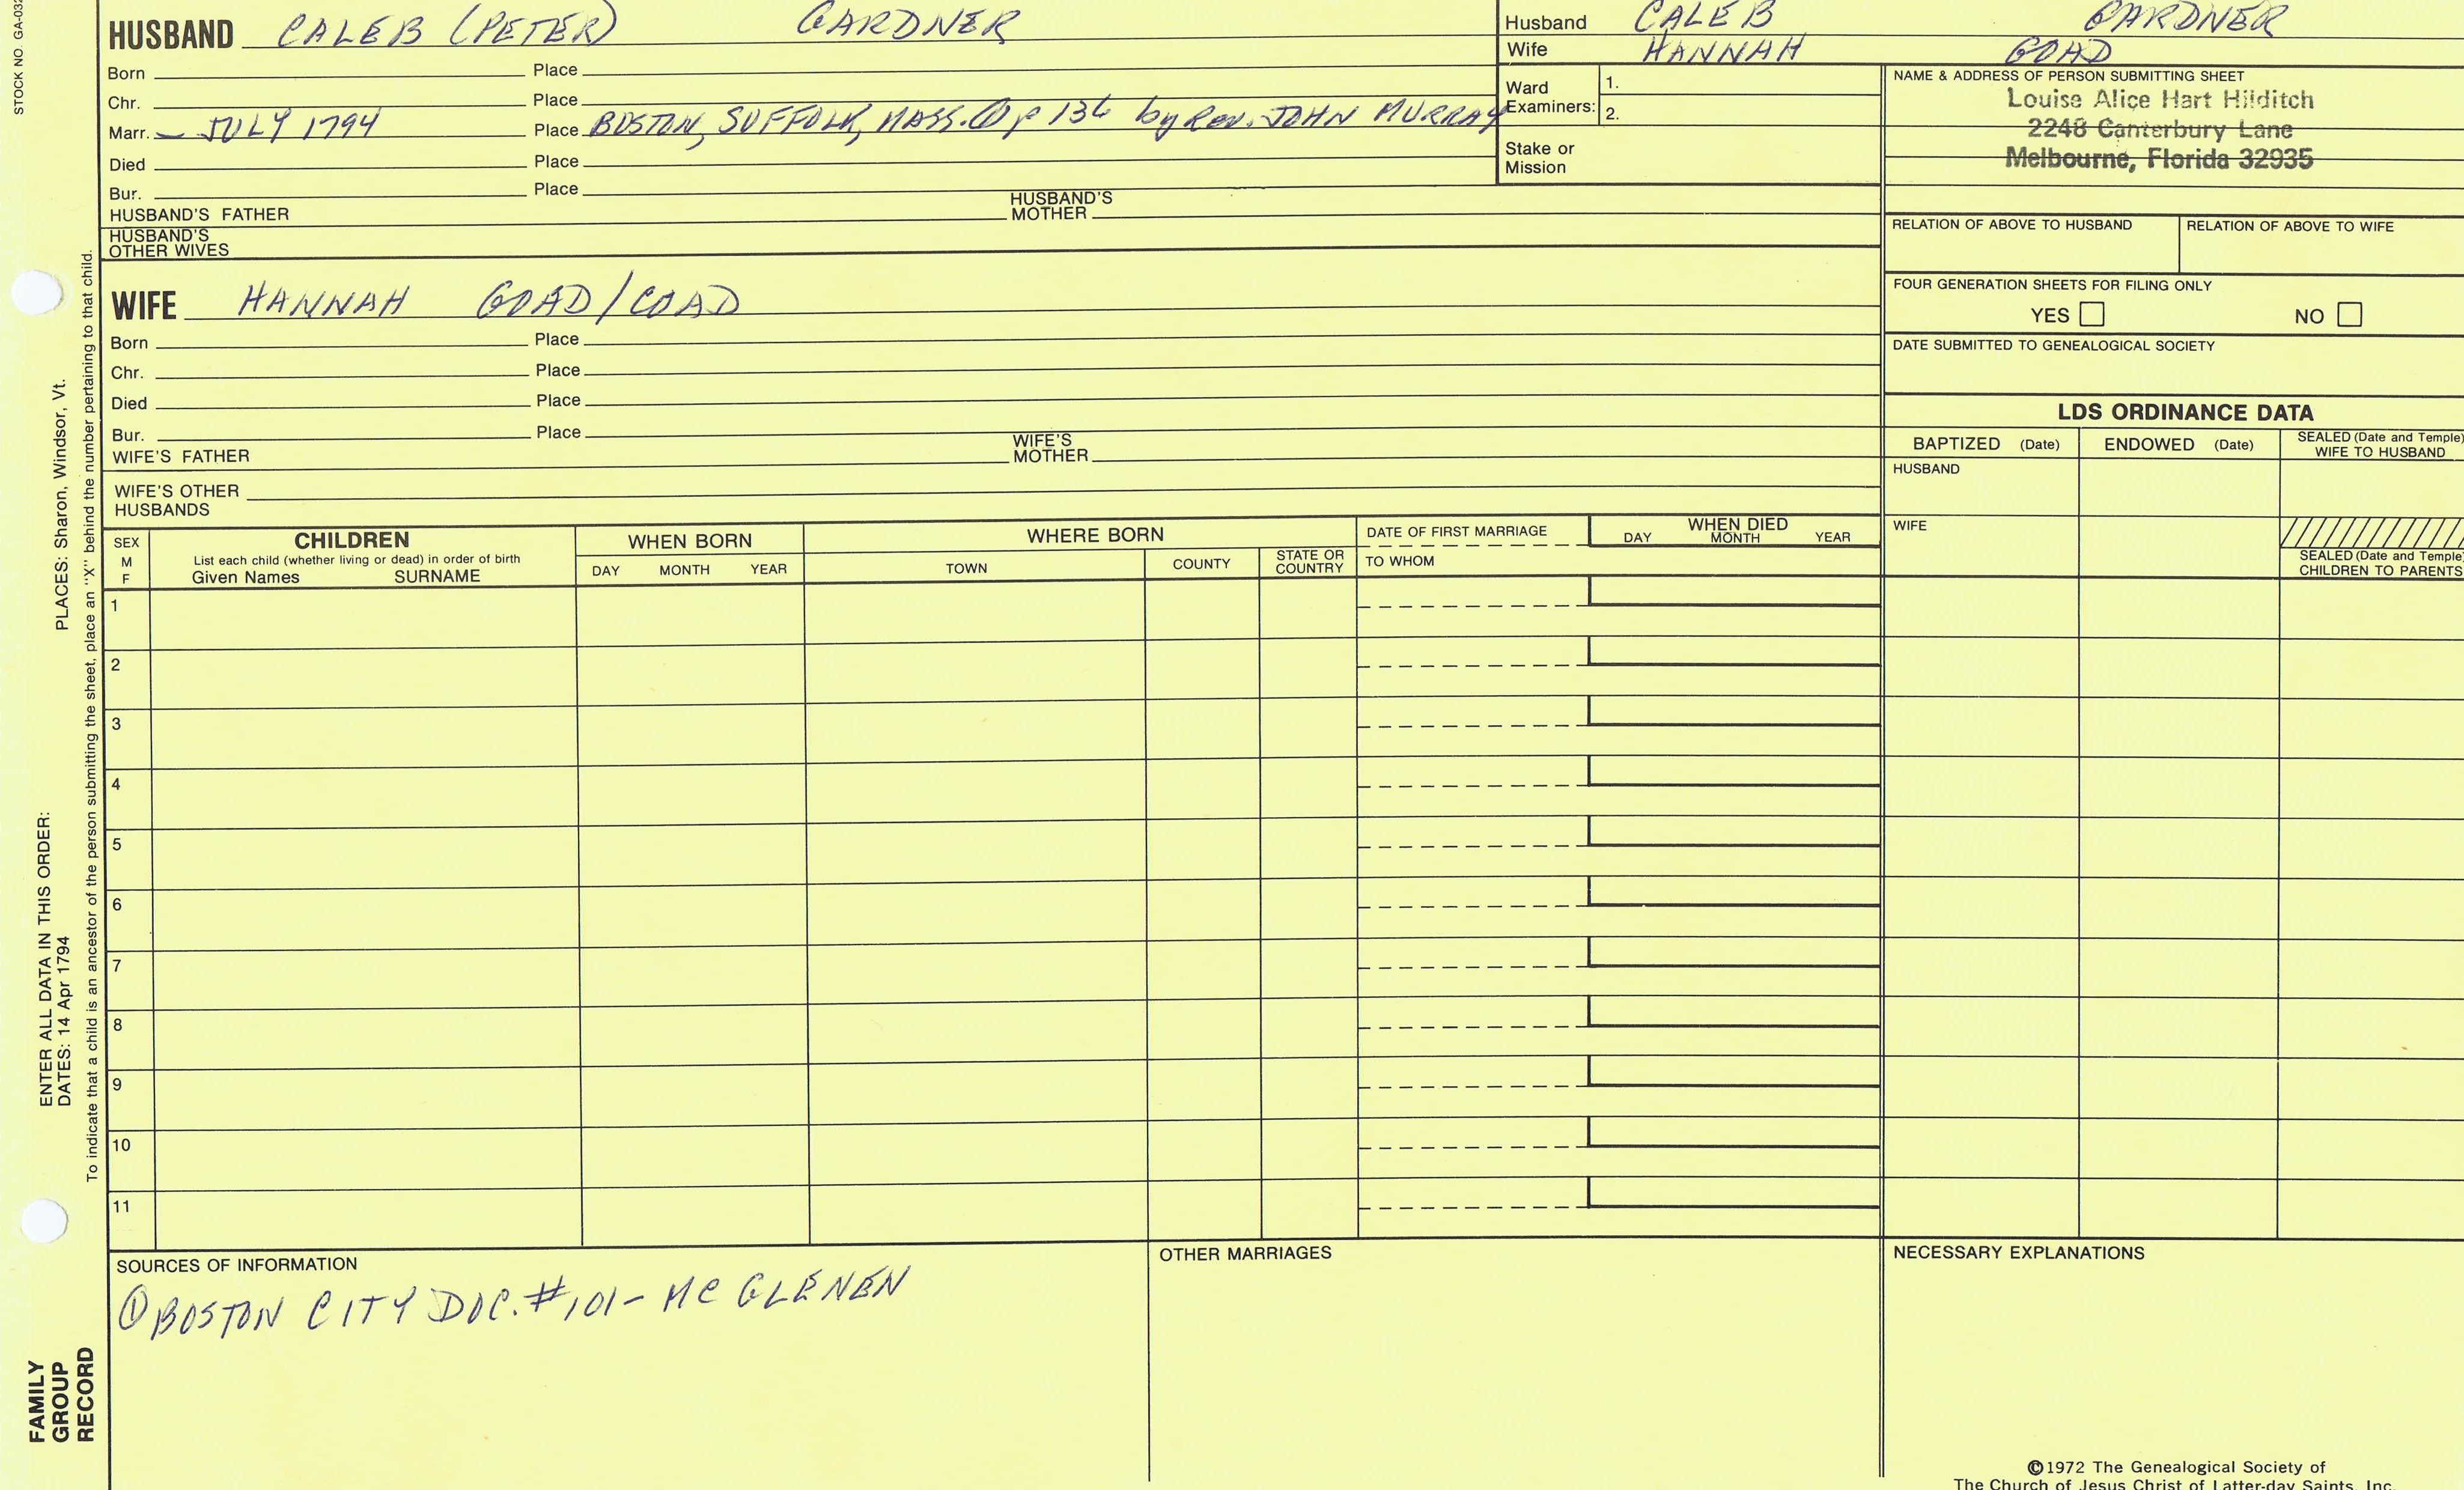 STOCK NO. GA-032
HUSBAND CALEB (PETER) GARDNER
Born Place
Chr. Place
Marr. - JULY 1794 Place BOSTON, SUFFOLK, MASS. ① p 136 by Rev. JOHN MURRAY
Died Place
Bur. Place
HUSBAND'S FATHER HUSBAND'S MOTHER
HUSBAND'S OTHER WIVES
Husband CALEB GARDNER
Wife HANNAH GOAD
Ward Examiners: 1.
2.
Stake or Mission
NAME & ADDRESS OF PERSON SUBMITTING SHEET
Louise Alice Hart Hilditch
2248 Canterbury Lane
Melbourne, Florida 32935
RELATION OF ABOVE TO HUSBAND RELATION OF ABOVE TO WIFE
FOUR GENERATION SHEETS FOR FILING ONLY
YES NO
DATE SUBMITTED TO GENEALOGICAL SOCIETY
WIFE HANNAH GOAD/COAD
Born Place
Chr. Place
Died Place
Bur. Place
WIFE'S FATHER WIFE'S MOTHER
WIFE'S OTHER HUSBANDS
LDS ORDINANCE DATA
BAPTIZED (Date) ENDOWED (Date) SEALED (Date and Temple) WIFE TO HUSBAND
HUSBAND
WIFE
SEALED (Date and Temple) CHILDREN TO PARENTS
SEX M F
CHILDREN
List each child (whether living or dead) in order of birth
Given Names SURNAME
WHEN BORN
DAY MONTH YEAR
WHERE BORN
TOWN COUNTY STATE OR COUNTRY
DATE OF FIRST MARRIAGE
TO WHOM
WHEN DIED
DAY MONTH YEAR
1
2
3
4
5
6
7
8
9
10
11
SOURCES OF INFORMATION
① BOSTON CITY DOC. #101- MC GLENEN
OTHER MARRIAGES
NECESSARY EXPLANATIONS
©1972 The Genealogical Society of
The Church of Jesus Christ of Latter-day Saints, Inc.
FAMILY
GROUP
RECORD
ENTER ALL DATA IN THIS ORDER:
DATES: 14 Apr 1794 PLACES: Sharon, Windsor, Vt.
To indicate that a child is an ancestor of the person submitting the sheet, place an "X" behind the number pertaining to that child.